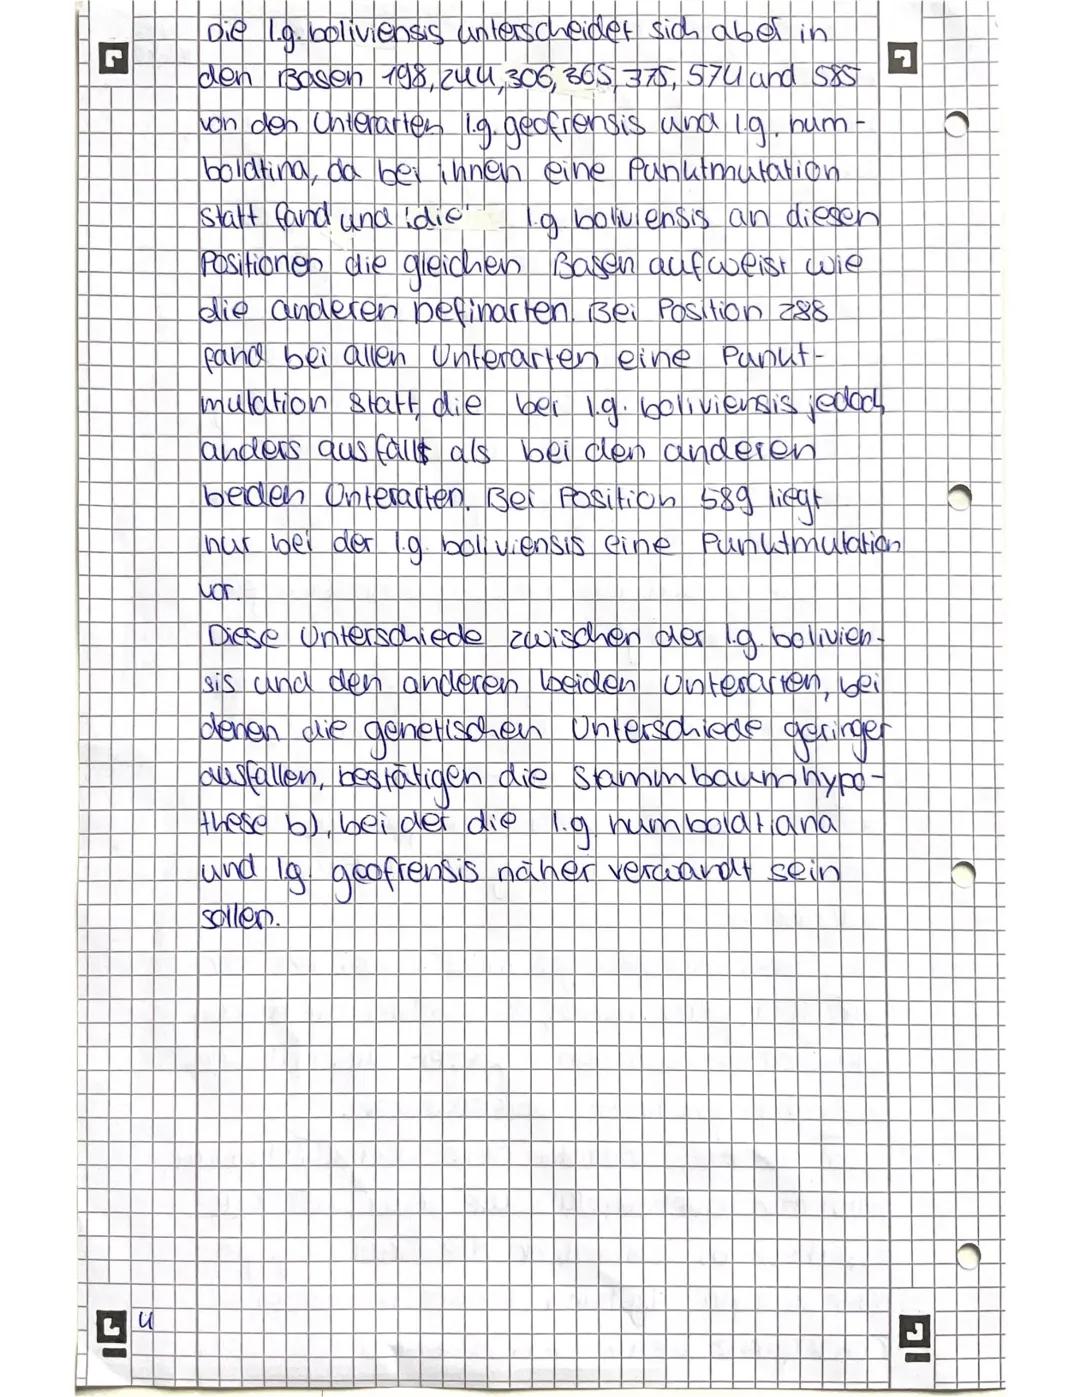 Die I.g. boliviensis unterscheidet sich aber in
den Basen 198, 244, 306, 365, 375, 574 und 585
von den Unterarten I.g. geofrensis und I.g. hum-
boldtina, da bei ihnen eine Punktmutation
statt fand und die I.g. boliviensis an diesen
Positionen die gleichen Basen aufweist wie
die anderen Delfinarten. Bei Position 288
fand bei allen Unterarten eine Punkt-
mutation statt, die bei I.g. boliviensis jedoch
anders ausfällt als bei den anderen
beiden Unterarten. Bei Position 589 liegt
nur bei der I.g. boliviensis eine Punktmutation
vor.
Diese Unterschiede zwischen der I.g. bolivien-
sis und den anderen beiden Unterarten, bei
denen die genetischen Unterschiede geringer
ausfallen, bestätigen die Stammbaumhypo-
these b), bei der die I.g humboldtiana
und Ig. geofrensis näher verwandt sein
sollen.
4